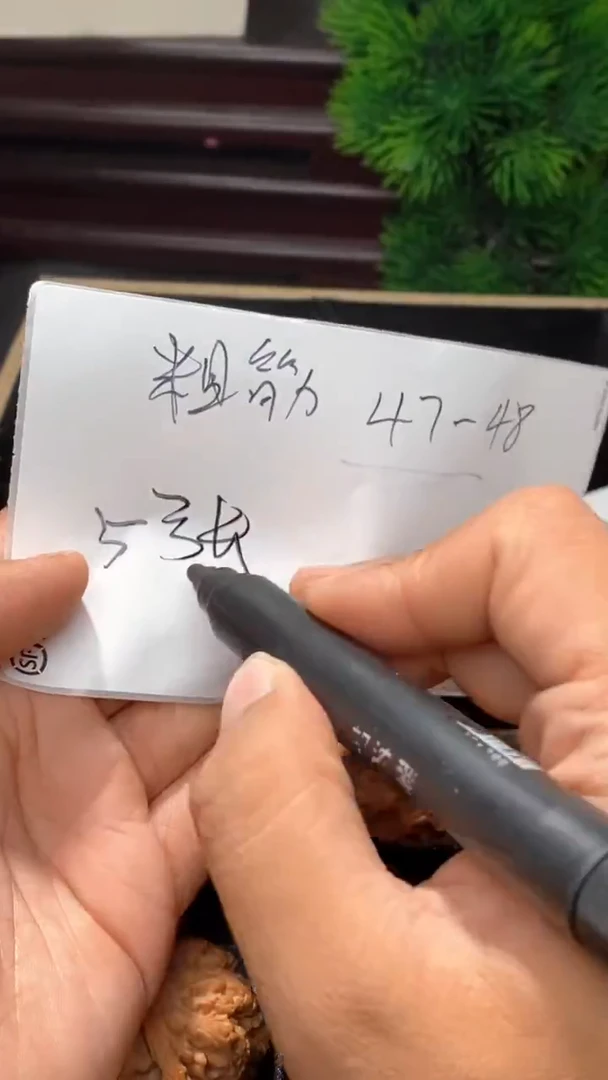 粗筋 47-48
5张
SF